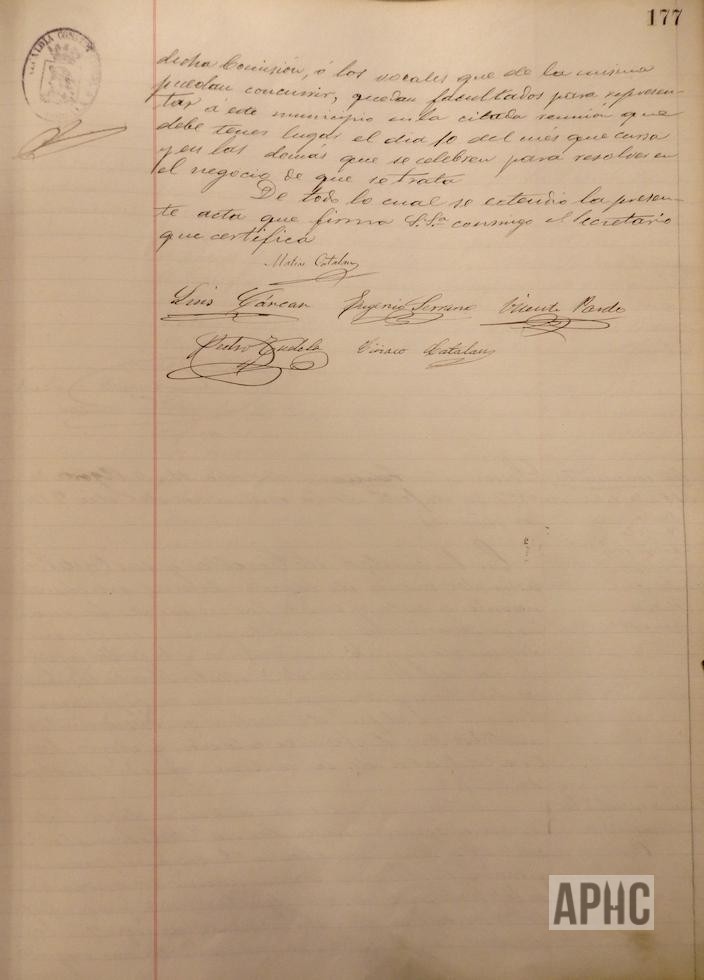 177
ALCALDIA CONST
dicha Comisión, ó los vocales que de la misma
puedan concurrir, quedan facultados para represen-
tar á este municipio en la citada reunion que
debe tener lugar el dia 10 del mes que cursa
y en las demás que se celebren para resolver en
el negocio de que se trata
De todo lo cual se extendio la presen-
te acta que firma S.Sa. conmigo el Secretario
que certifica
Matias Catalan
Luis Cárcar Eugenio Serrano Vicente Pardo
Pedro Tudela Ciriaco Catalan
APHC